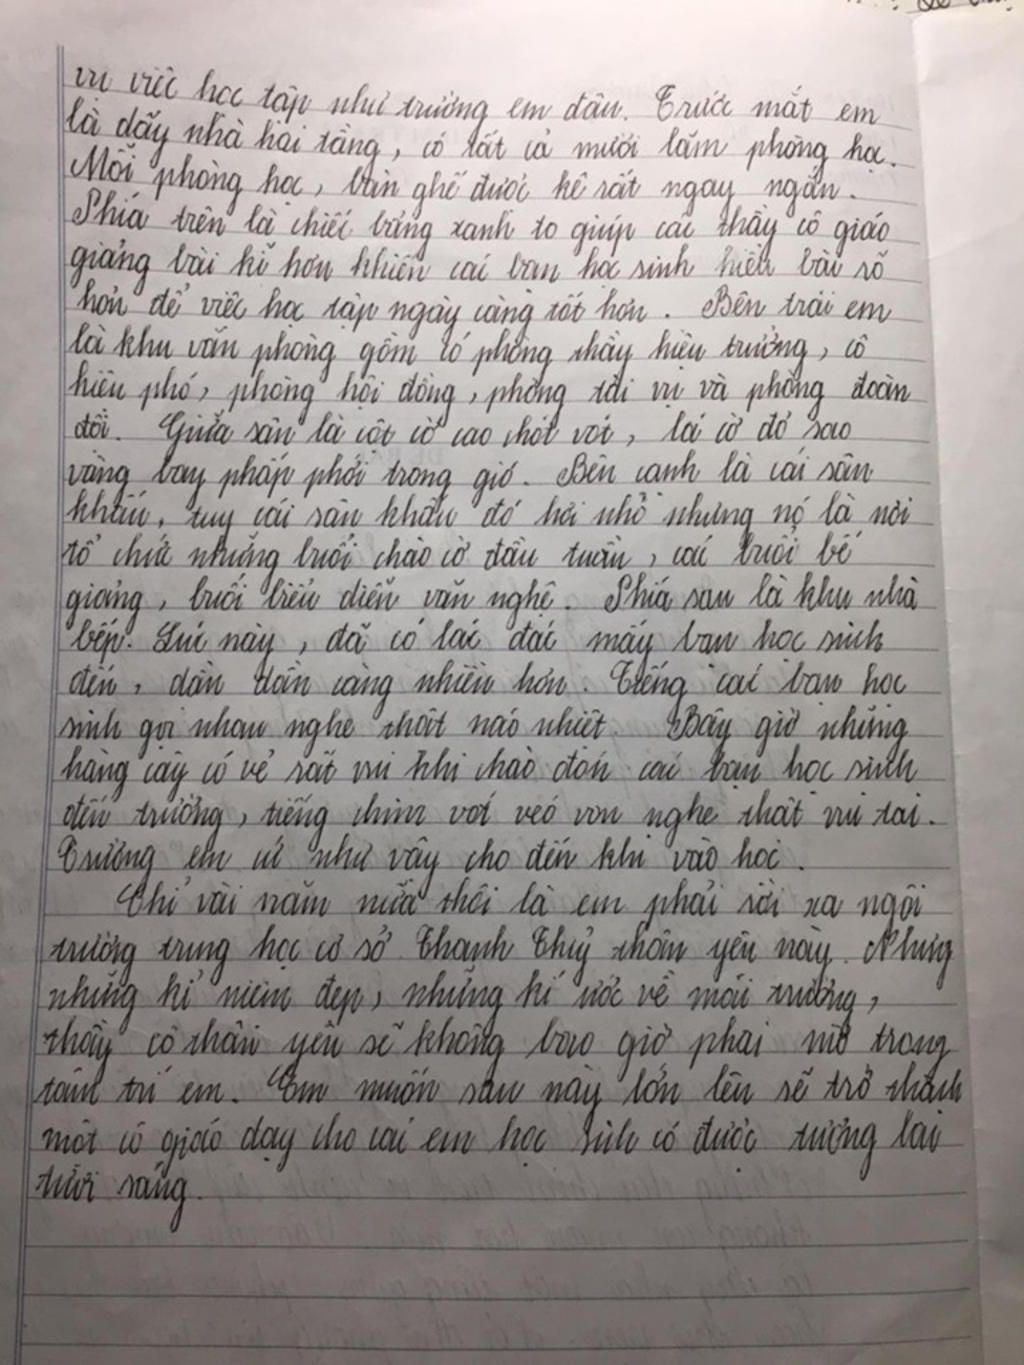 vụ việc học tập như trường em đâu. Trước mắt em
là dãy nhà hai tầng, có tất cả mười lăm phòng học.
Mỗi phòng học, bàn ghế được kê rất ngay ngắn.
Phía trên là chiếc bảng xanh to giúp các thầy cô giáo
giảng bài kĩ hơn khiến các bạn học sinh hiểu bài rõ
hơn để việc học tập ngày càng tốt hơn. Bên trái em
là khu văn phòng gồm có phòng thầy hiệu trưởng, cô
hiệu phó, phòng hội đồng, phòng tài vụ và phòng đoàn
đội. Giữa sân là cột cờ cao chót vót, lá cờ đỏ sao
vàng bay phấp phới trong gió. Bên cạnh là cái sân
khấu, tuy cái sân khấu đó hơi nhỏ nhưng nó là nơi
tổ chức những buổi chào cờ đầu tuần, các buổi bế
giảng, buổi biểu diễn văn nghệ. Phía sau là khu nhà
bếp. Lúc này, đã có lác đác mấy bạn học sinh
đến, dần dần càng nhiều hơn. Tiếng các bạn học
sinh gọi nhau nghe thật náo nhiệt. Bây giờ những
hàng cây có vẻ rất vui khi chào đón các bạn học sinh
đến trường, tiếng chim véo von nghe thật vui tai.
Trường em cứ như vậy cho đến khi vào học.
Chỉ vài năm nữa thôi là em phải rời xa ngôi
trường trung học cơ sở Thanh Thuỷ thân yêu này. Nhưng
những kỉ niệm đẹp, những kí ức về mái trường,
thầy cô thân yêu sẽ không bao giờ phai mờ trong
tâm trí em. Em muốn sau này lớn lên sẽ trở thành
một cô giáo dạy cho các em học sinh có được tương lai
tươi sáng.